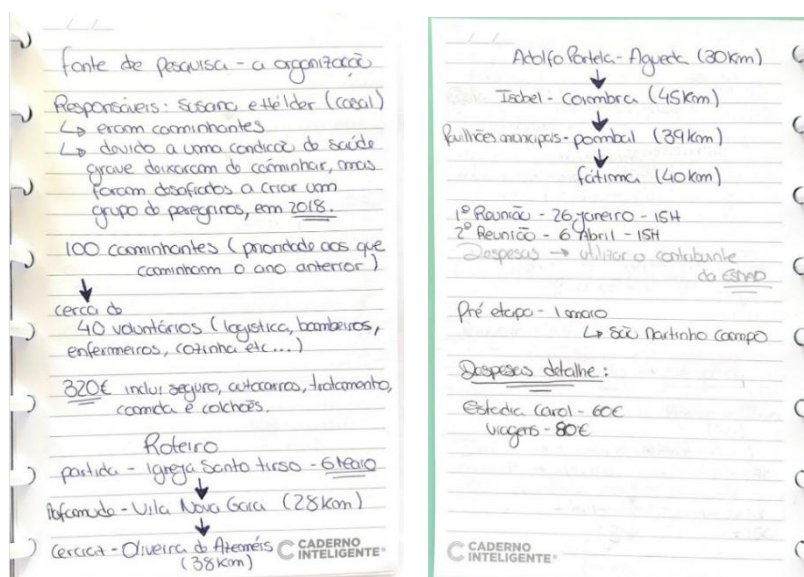 fonte de pesquisa - a organização
Responsáveis: Susana e Hélder (casal)
↳ eram caminhantes
↳ devido a uma condição de saúde
grave deixaram de caminhar, mas
foram desafiados a criar um
grupo de peregrinos, em 2018.
100 caminhantes (prioridade aos que
caminham o ano anterior)
↓
cerca de
40 voluntários (logística, bombeiros,
enfermeiros, cozinha etc...)
320€ inclui seguro, autocarros, tratamento,
comida e colchões.
Roteiro
partida - Igreja Santo tirso - 6 Maio
↓
Vila Nova Gaia (28km)
↓
Oliveira de Azeméis
(38km)
CADERNO
INTELIGENTE®
Adolfo Portela - Águeda (30km)
↓
Isabel - Coimbra (45km)
↓
municipais - pombal (39km)
↓
fátima (40km)
1º Reunião - 26 janeiro - 15H
2º Reunião - 6 Abril - 15H
Despesas → utilizar o contribuinte
da ESMAD
Pré etapa - 1 maio
↳ São Martinho Campo
Despesas detalhe:
Estadia Carol - 60€
viagens - 80€
CADERNO
INTELIGENTE®